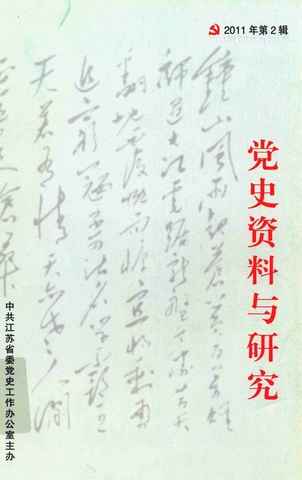 2011年第2辑
党史资料与研究
中共江苏省委党史工作办公室主办
鐘山風雨起蒼黃百萬雄
師過大江虎踞龍盤今勝昔天
翻地覆慨而慷宜將剩勇
追窮寇不可沽名學霸王
天若有情天亦老人間
正道是滄桑